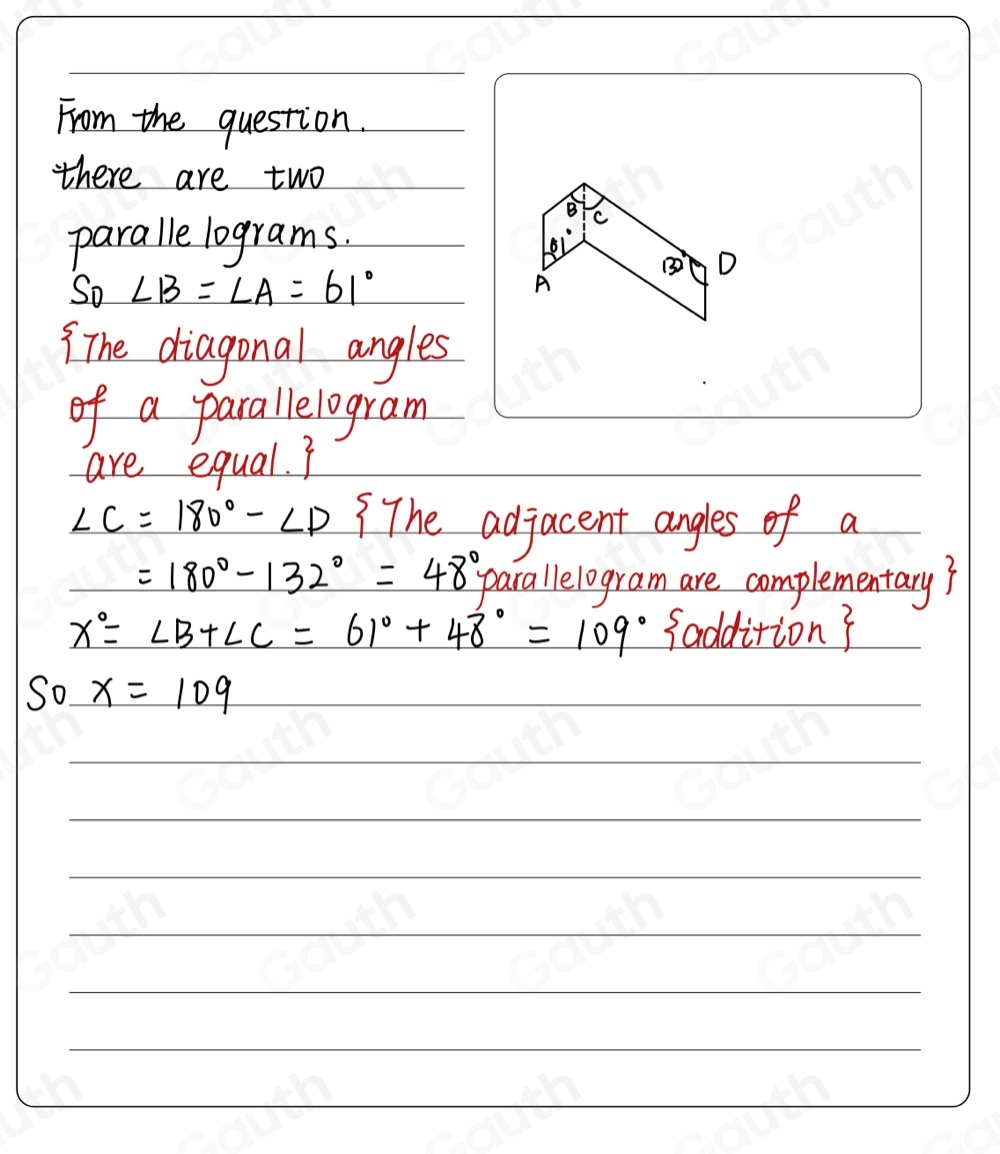 From the question.
there are two
parallelograms.
So ∠B = ∠A = 61°
{The diagonal angles
of a parallelogram
are equal.}
∠C = 180° - ∠D {The adjacent angles of a
= 180° - 132° = 48° parallelogram are complementary}
x° = ∠B+∠C = 61° + 48° = 109° {addition}
So x = 109
B
C
61°
A
132°
D
Gauth